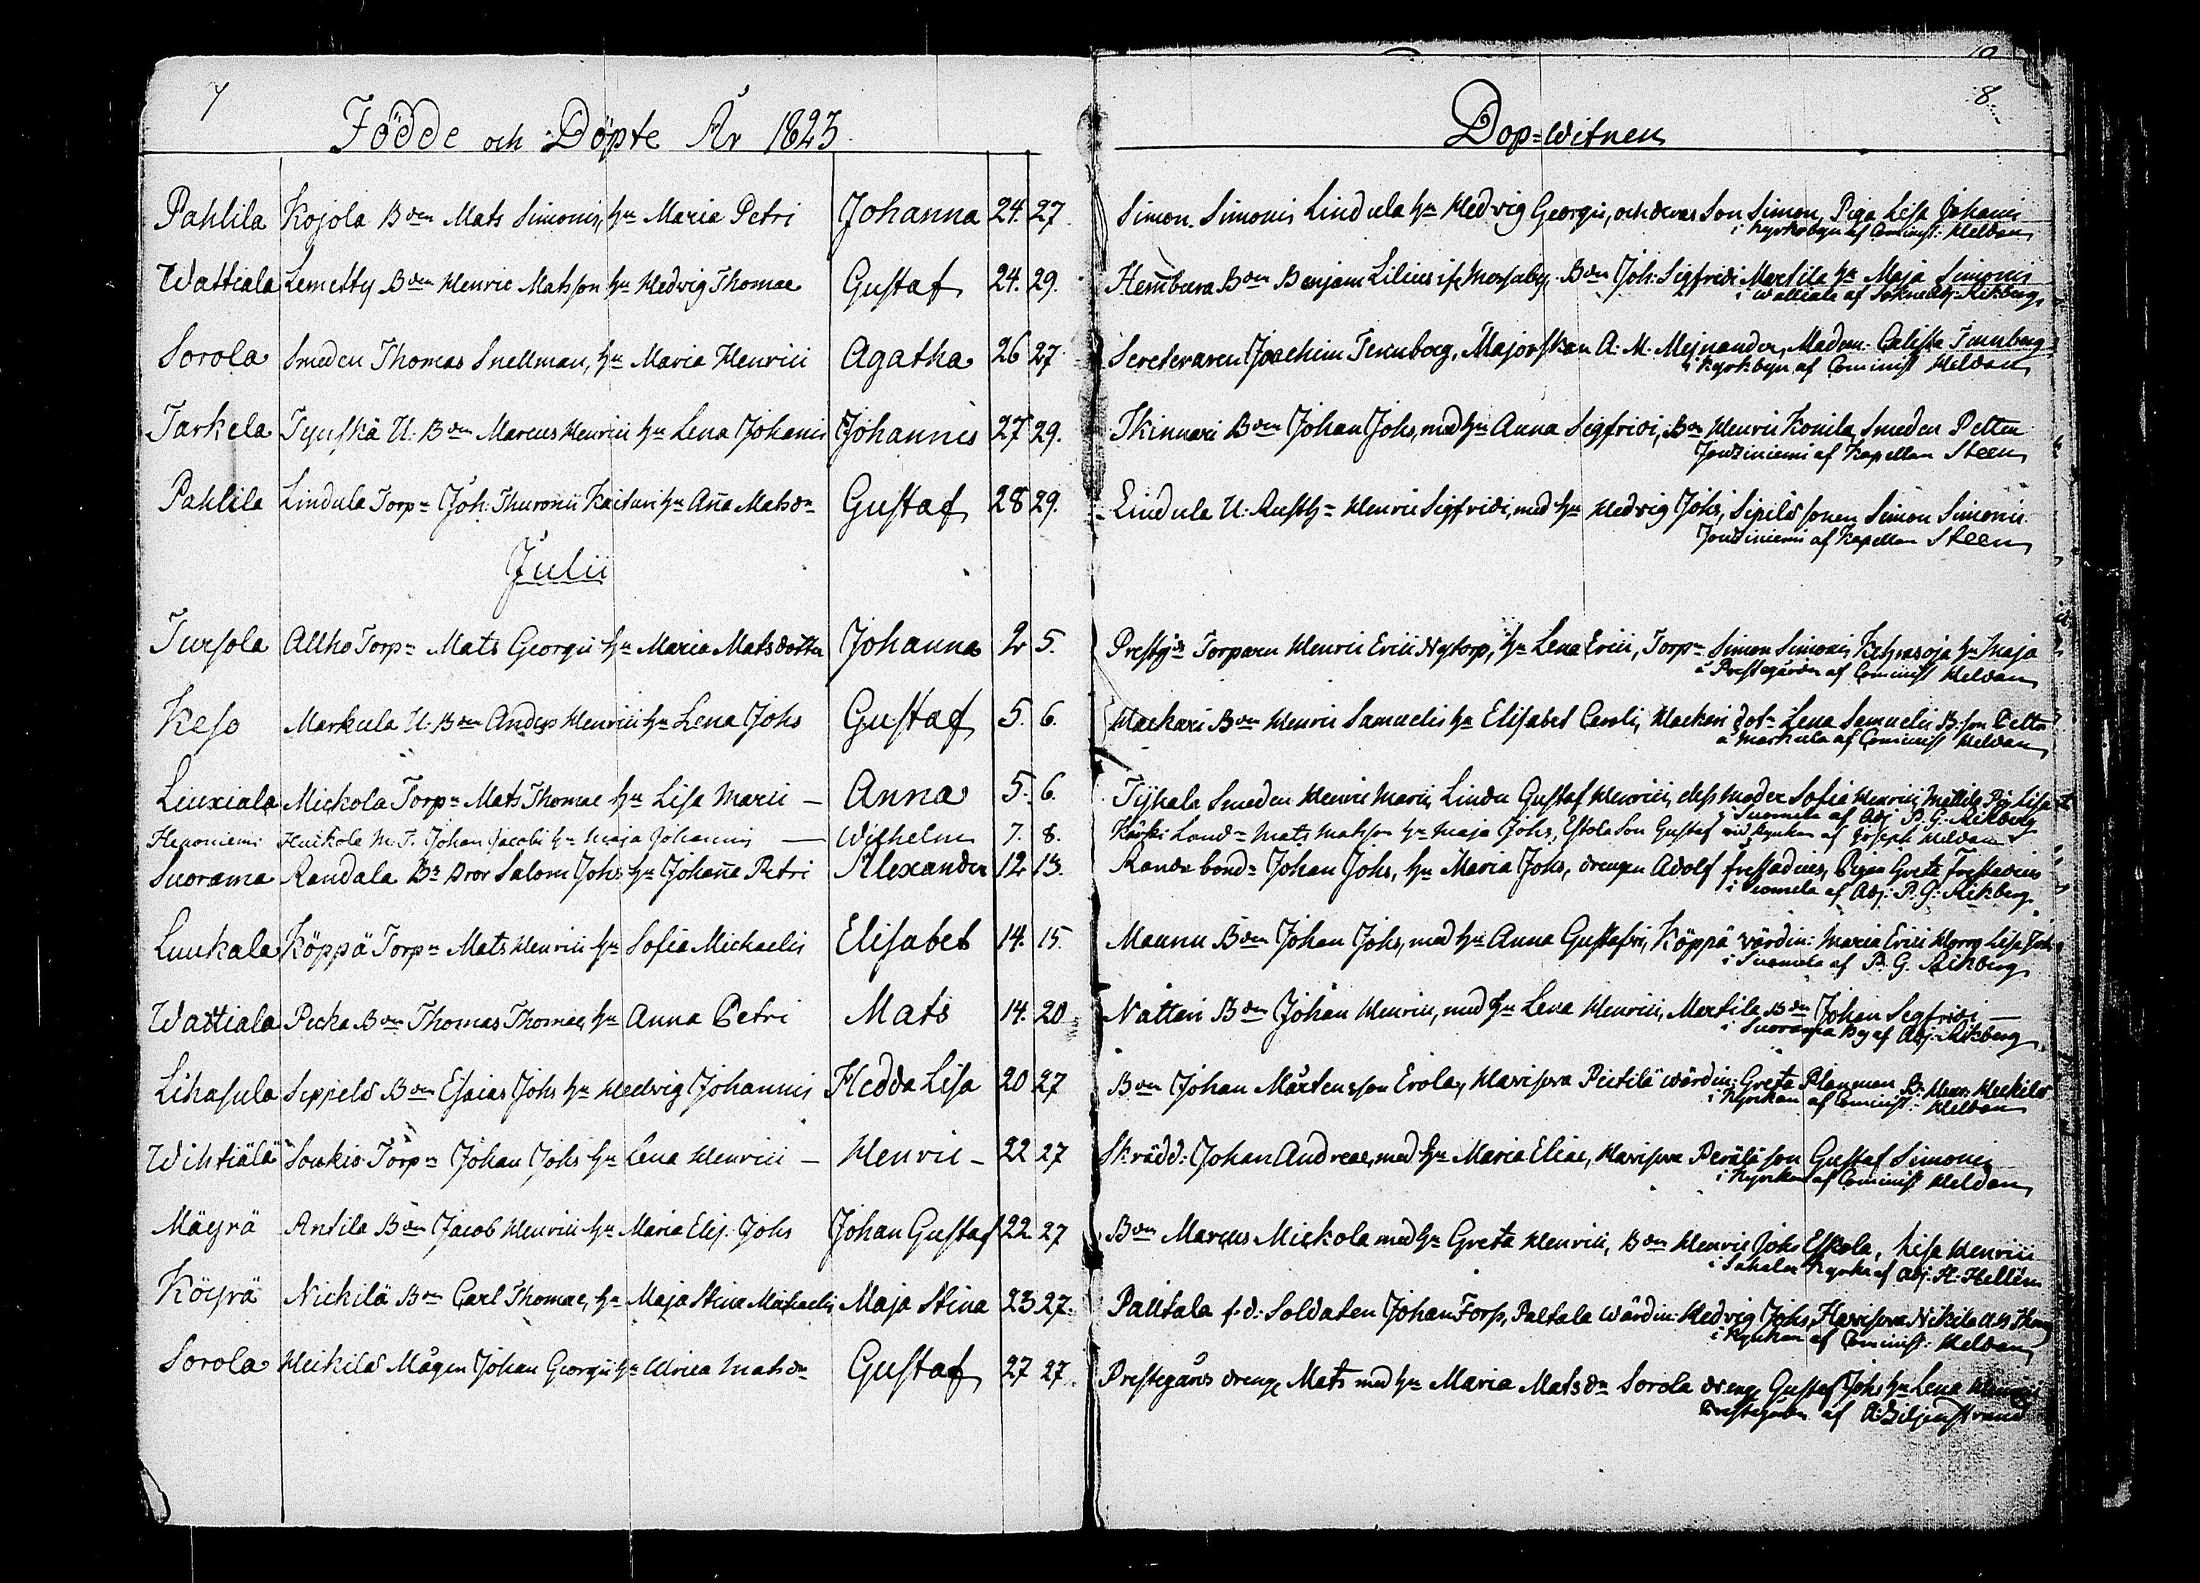 7
Födde och Döpte År 1823.
Pahlila Kojola Bden Mats Simonis, hu Maria Petri Johanna 24. 27
Wattiala Lemetty Bden Henric Matsson hu Hedvig Thomae Gustaf 24. 29.
Sorola Smeden Thomas Snellman, hu Maria Henrici Agatha 26 27
Tarkela U. Bden Marcus Henrici hu Lena Johanis Johannes 27 29.
Pahlila Lindula Torp= Joh: Thuronii Kaituri hu Aña Matsdr Gustaf 28 29.
Julii
Tursola Allho Torp= Mats Georgii hu Maria Matsdotter Johanna 2 5.
Keso Markula U. Bden Anders Henrici hu Lena Johs Gustaf 5. 6.
Liuxiala Mickola Torp= Mats Thomae hu Lisa Marci – Anna 5. 6.
Heponiemi Huikola M. T. Johan Jacobi hu Maja Johannis — Wilhelm 7. 8.
Suorama Randala Salom Johs hu Johaña Petri Alexander 12 13.
Luukala Köppä Torp= Mats Henrici hu Sofia Michaelis Elisabet 14. 15.
Wattiala Pecka Bden Thomas Thomae, hu Anna Petri Mats 14. 20
Lihasula Seppelä Bden Esaias Johs hu Hedvig Johannis Hedda Lisa 20 27
Wihtiälä Soukio Torp= Johan Johs hu Lena Henrici – Henric – 22 27
Mäyrä Antila Bden Jacob Henrici hu Maria Elis. Johs Johan Gustaf 22. 27
Köyrä Nickilä Bden Carl Thomae, hu Maja Stina Michaelis Maja Stina 23 27.
Sorola Heikilä Mågen Johan Georgii hu Ulrica Matsdr Gustaf 27 27.
8.
Dop=witnen
Simon Simonis Lindula hu Hedvig Georgii, och deras Son Simon, Piga Lisa Johanis
i Kyrkobyn af Cominist: Heldan
Bden Benjam Lilius Bden Joh: Sigfridi Mertila hu Maja Simonis
i Wattiala af Adj: Rikberg
Secreteraren Joachim Tennberg, Majorskan A. M. Mejnander, Madem: Tennberg
i Kyrkbyn af Cominist Heldan
Ikinnari Bden Johan Johs, med hu Anna Sigfridi, Bden Henric Konila, Smeden Petter
Joutziniemi af Kapellan Steen
Lindula U. Rusth= Henric Sigfridi, med hu Hedvig Johs, Sipilä sonen Simon Simonis
Joutziniemi af Kapellan Steen
Prestgds Torparen Henric Erici Nytorp, hu Lena Erici, Torp= Simon Simonis hu Maja
i Prestegården af Cominist Heldan
Bden Henric Samuelis hu Elisabet Caroli, dotr Lena Samuelis
å Markula af Cominist Heldan
Tijhala Smeden Henric Marci, Gustaf Henrici, Sofia Henrici, Lisa
i Suomela af Adj P. G. Rikberg
Mats Matsson hu Maja Johs, Eskola Son Gustaf vid Kyrkan af Joseph Heldan
Randa bond= Johan Johs, hu Maria Johs, drengen Adolf Frestadius, Pigan Greta Frestadius
i Suomela af Adj: P. G. Rikberg
Maunu Bden Johan Johs, med hu Anna Gustafsdr, Köppä värdin: Maria Erici Lisa Joh
i Suomela af P. G. Rikberg
Nattari Bden Johan Henrici, med hu Lena Henrici, Mertila Bden Johan Segfridi —
i Suorama By af Adj: Rikberg
Bden Johan Mårtensson Erola, Pietilä wärdin: Greta Planman
i Kyrckan af Cominist: Heldan
Skrädd: Johan Andreae, med hu Maria Eliae, Perälä son Gustaf Simonis
i Kyrckan af Cominist Heldan
Bden Marcus Mickola med hu Greta Henrici, Bden Henric Johs Eskola, Lisa Henrici
i Sahalax Kyrka af Adj. H. Hellén
Palltala f. d: Soldaten Johan Fors, Paltala wärdin: Hedvig Johs, Nikila
i Kyrckan af Cominist: Heldan
Prestegårds dreng Mats med hu Maria Matsdr Sorola dreng Gustaf Johs hu Lena Henrici
Prestegården af